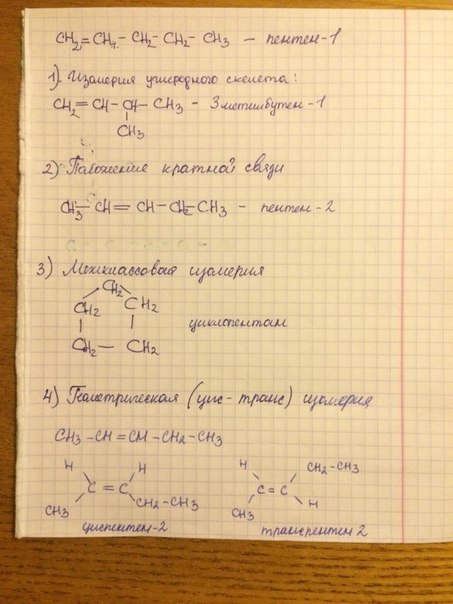 CH₂=CH-CH₂-CH₂-CH₃ - пентен-1
1) Изомерия углеродного скелета:
CH₂=CH-CH-CH₃ - 3метилбутен-1
CH₃
2) Положение кратной связи
CH₃-CH=CH-CH₂-CH₃ - пентен-2
3) Межклассовая изомерия
CH₂
CH₂ CH₂
циклопентан
CH₂-CH₂
4) Геометрическая (цис-транс) изомерия
CH₃-CH=CH-CH₂-CH₃
H H H CH₂-CH₃
C=C C=C
CH₃ CH₂-CH₃ CH₃ H
циспентен-2 транспентен 2